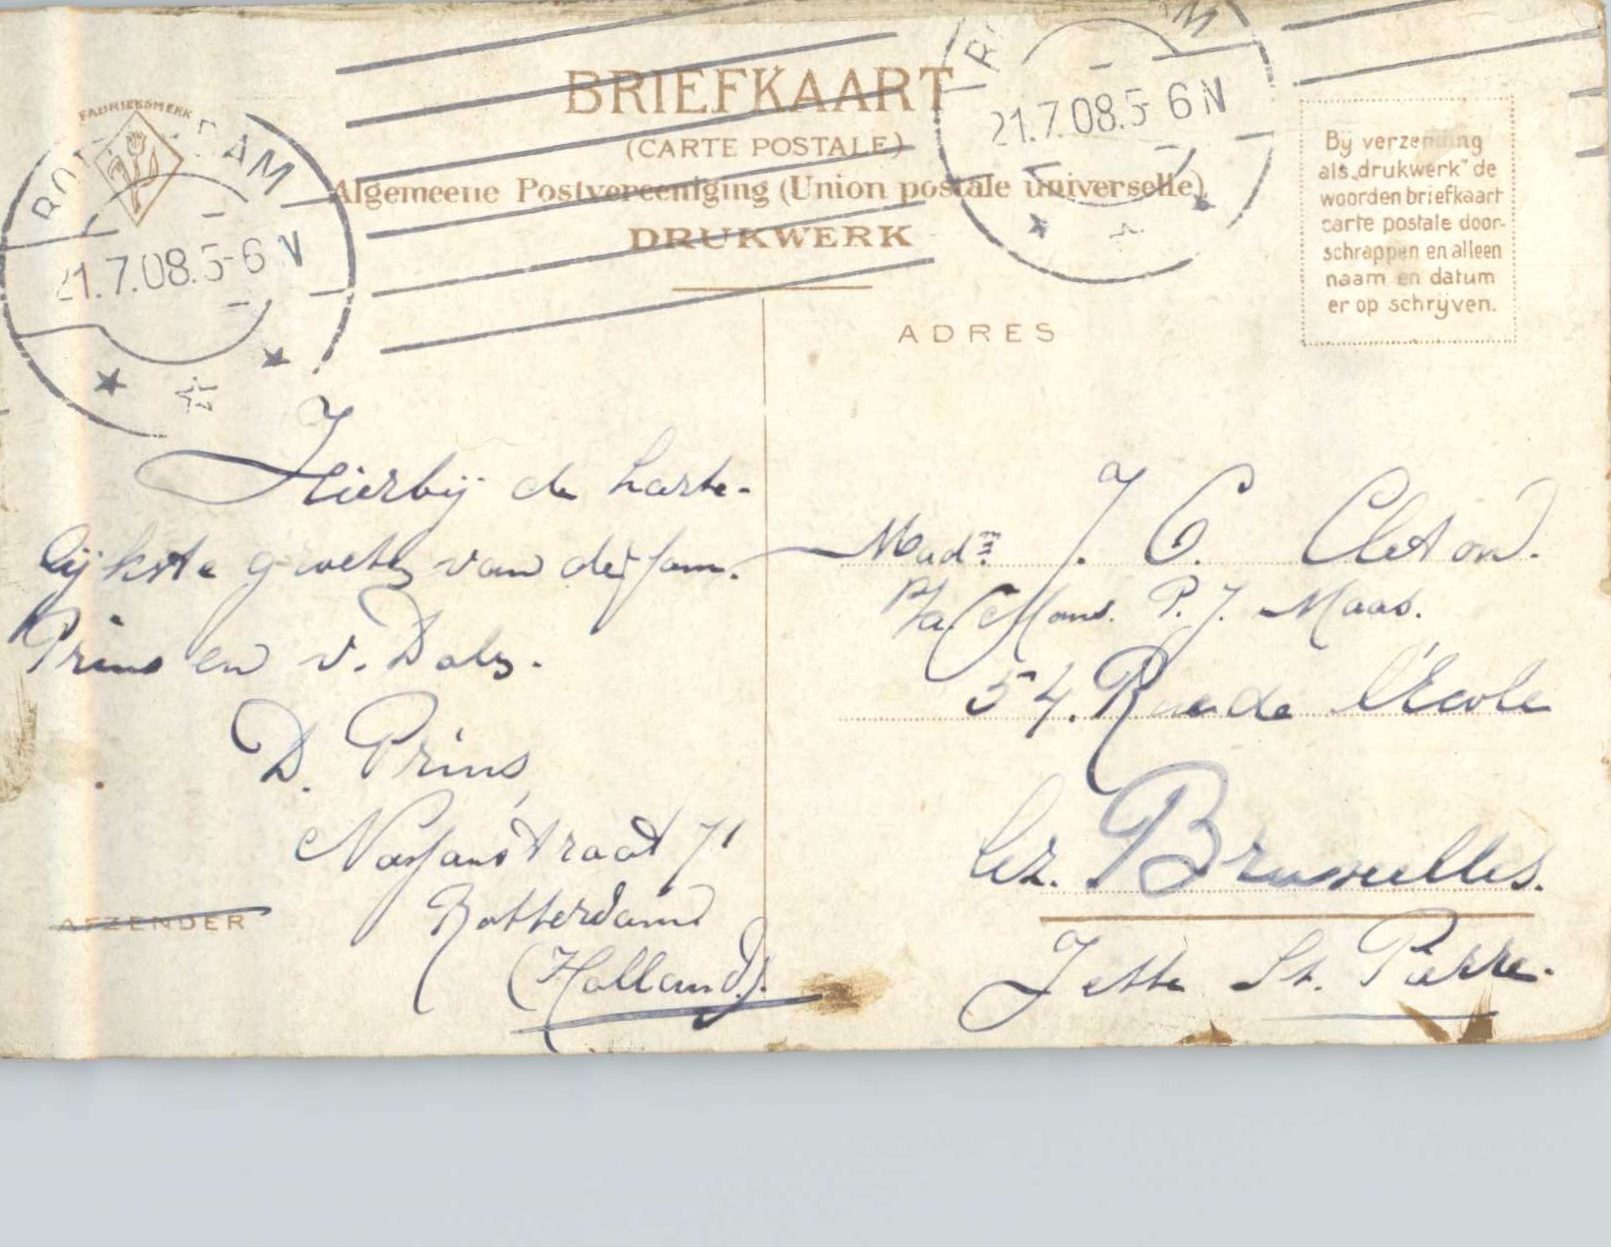 BRIEFKAART
(CARTE POSTALE)
Algemeene Postvereeniging (Union postale universelle)
DRUKWERK
FABRIEKSMERK
ROTTERDAM
21.7.08.5-6 N
21.7.08.5-6 N
By verzending
als „drukwerk" de
woorden briefkaart
carte postale door-
schrappen en alleen
naam en datum
er op schrijven.
ADRES
Hierbij de harte-
lijkste groeten van de fam.
Prins en v. Dals.
D. Prins
Nassaustraat 71
Rotterdam
(Holland).
AFZENDER
Made J. C. Cleton.
P/a Mons. P. J. Maas.
54. Rue de l'Ecole
lez. Bruxelles.
Jette St. Pierre.